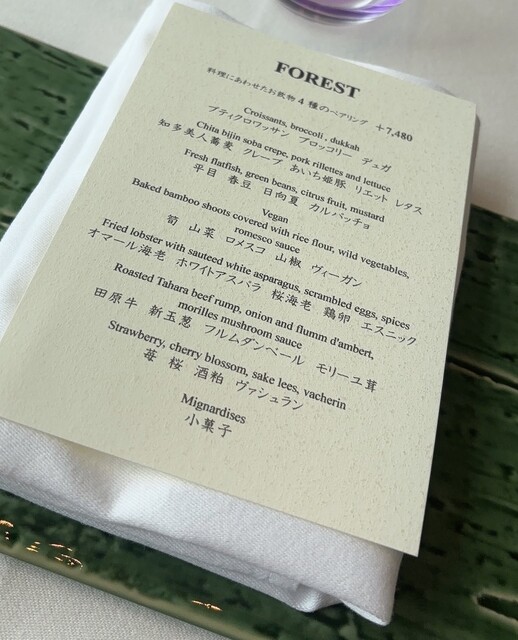 FOREST
料理にあわせたお飲物4種のペアリング +7,480
Croissants, broccoli, dukkah
プティクロワッサン ブロッコリー デュカ
Chita bijin soba crepe, pork rillettes and lettuce
知多美人蕎麦 クレープ あいち姫豚 リエット レタス
Fresh flatfish, green beans, citrus fruit, mustard
平目 春豆 日向夏 カルパッチョ
Vegan
Baked bamboo shoots covered with rice flour, wild vegetables,
romesco sauce
筍 山菜 ロメスコ 山椒 ヴィーガン
Fried lobster with sauteed white asparagus, scrambled eggs, spices
オマール海老 ホワイトアスパラ 桜海老 鶏卵 エスニック
Roasted Tahara beef rump, onion and flumm d'ambert,
morilles mushroom sauce
田原牛 新玉葱 フルムダンベール モリーユ茸
Strawberry, cherry blossom, sake lees, vacherin
苺 桜 酒粕 ヴァシュラン
Mignardises
小菓子